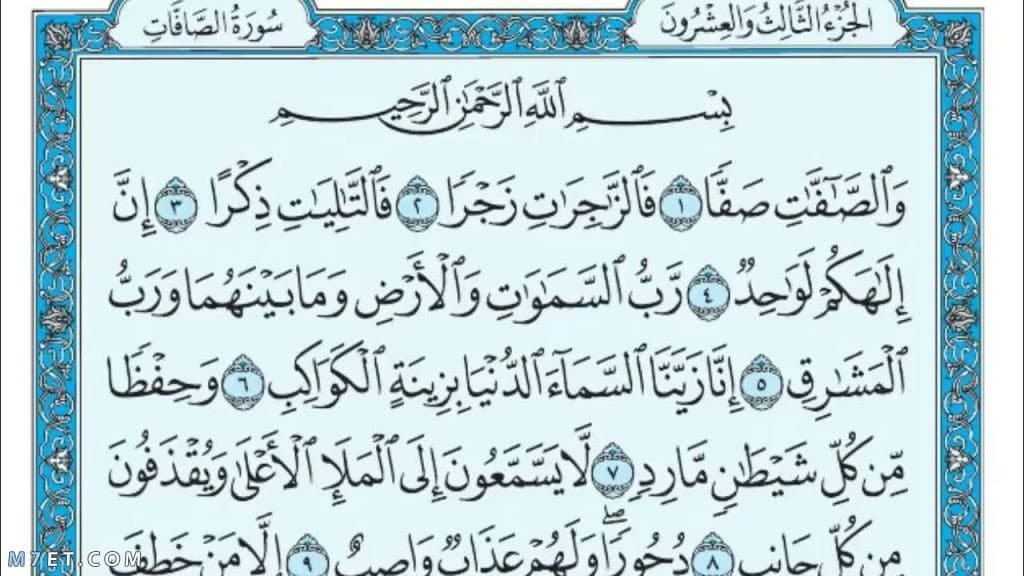 الجزء الثالث والعشرون
سورة الصافات
بِسْمِ ٱللَّهِ ٱلرَّحْمَٰنِ ٱلرَّحِيمِ
وَٱلصَّٰٓفَّٰتِ صَفًّا ١ فَٱلزَّٰجِرَٰتِ زَجْرًا ٢ فَٱلتَّٰلِيَٰتِ ذِكْرًا ٣ إِنَّ
إِلَٰهَكُمْ لَوَٰحِدٌ ٤ رَّبُّ ٱلسَّمَٰوَٰتِ وَٱلْأَرْضِ وَمَا بَيْنَهُمَا وَرَبُّ
ٱلْمَشَٰرِقِ ٥ إِنَّا زَيَّنَّا ٱلسَّمَآءَ ٱلدُّنْيَا بِزِينَةٍ ٱلْكَوَاكِبِ ٦ وَحِفْظًا
مِّن كُلِّ شَيْطَٰنٍ مَّارِدٍ ٧ لَّا يَسَّمَّعُونَ إِلَى ٱلْمَلَإِ ٱلْأَعْلَىٰ وَيُقْذَفُونَ
مِن كُلِّ جَانِبٍ ٨ دُحُورًا ۖ وَلَهُمْ عَذَابٌ وَاصِبٌ ٩ إِلَّا مَنْ خَطِفَ
M7ET.COM